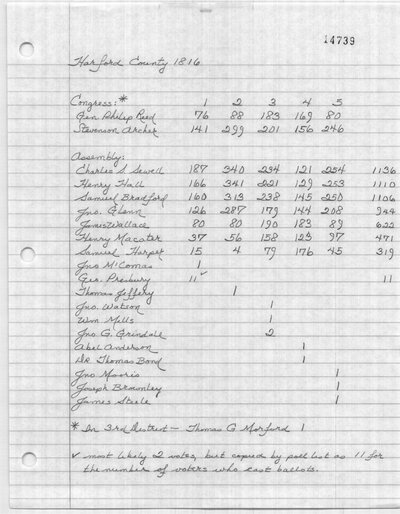 14739
Harford County 1816
Congress:* 1 2 3 4 5
Gen Philip Reed 76 88 183 169 80
Stevenson Archer 141 299 201 156 246
Assembly:
Charles S. Sewell 187 340 234 121 254 1136
Henry Hall 166 341 221 129 253 1110
Samuel Bradford 160 313 238 145 250 1106
Jno. Glenn 126 287 179 144 208 944
James Wallace 80 80 190 183 89 622
Henry Macater 37 56 158 123 97 471
Samuel Harper 15 4 79 176 45 319
Jno McComas 1
Geo. Presbury 11 ✓ 11
Thomas Jeffery 1
Jno. Watson 1
Wm Mills 1
Jno G. Grindall 2
Abel Anderson 1
Dr Thomas Bond 1
Jno Moores 1
Joseph Brownley 1
James Steele 1
* In 3rd District — Thomas G Morford 1
✓ most likely 2 votes, but copied by poll list as 11 for
the number of voters who cast ballots.